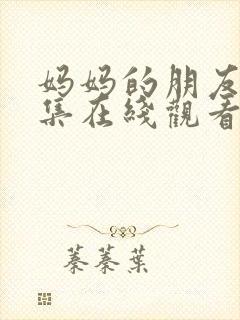 妈妈的朋友
集在线觀看
蓁蓁葉